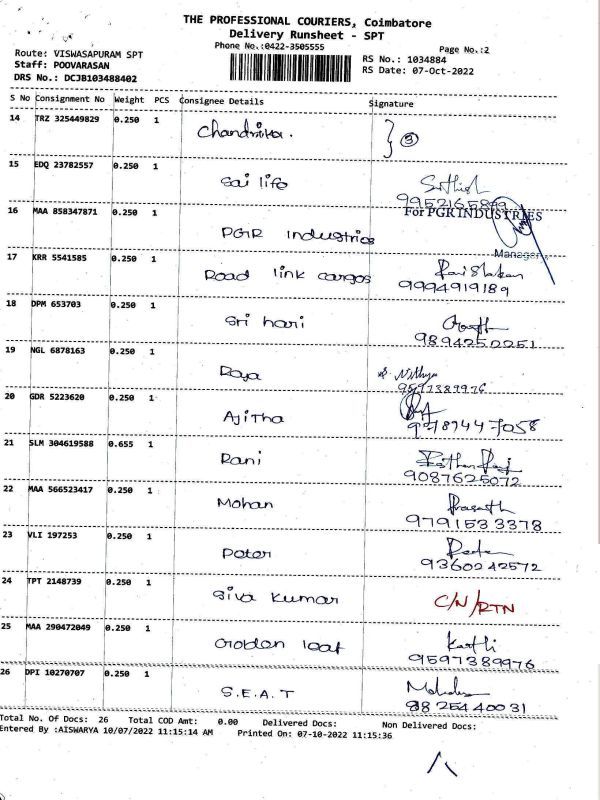 THE PROFESSIONAL COURIERS, Coimbatore
Delivery Runsheet - SPT
Phone No.:0422-3505555
Page No.:2
Route: VISWASAPURAM SPT
Staff: POOVARASAN
DRS No.: DCJB103488402
RS No.: 1034884
RS Date: 07-Oct-2022
S No Consignment No Weight PCS Consignee Details Signature
14 TRZ 325449829 0.250 1
Chandrika.
15 EDQ 23782557 0.250 1
Sai life Sathish
9952165899
16 MAA 858347871 0.250 1 For PGR INDUSTRIES
PGR industries
Manager
17 KRR 5541585 0.250 1
Road link cargos
9994919189
18 DPM 653703 0.250 1
Sri hari
9894252251
19 NGL 6878163 0.250 1
Raja S. Nithya
9597389976
20 GDR 5223620 0.250 1
Ajitha
21 SLM 304619588 0.655 1
Rani
9087625072
22 MAA 566523417 0.250 1
Mohan Prasath
9791533378
23 VLI 197253 0.250 1
Peter
9360242572
24 TPT 2148739 0.250 1
Siva Kumar C/N/RTN
25 MAA 290472049 0.250 1
Golden leaf
9597389976
26 DPI 10270707 0.250 1
S.E.A.T
9825440031
Total No. Of Docs: 26 Total COD Amt: 0.00 Delivered Docs: Non Delivered Docs:
Entered By :AISWARYA 10/07/2022 11:15:14 AM Printed On: 07-10-2022 11:15:36